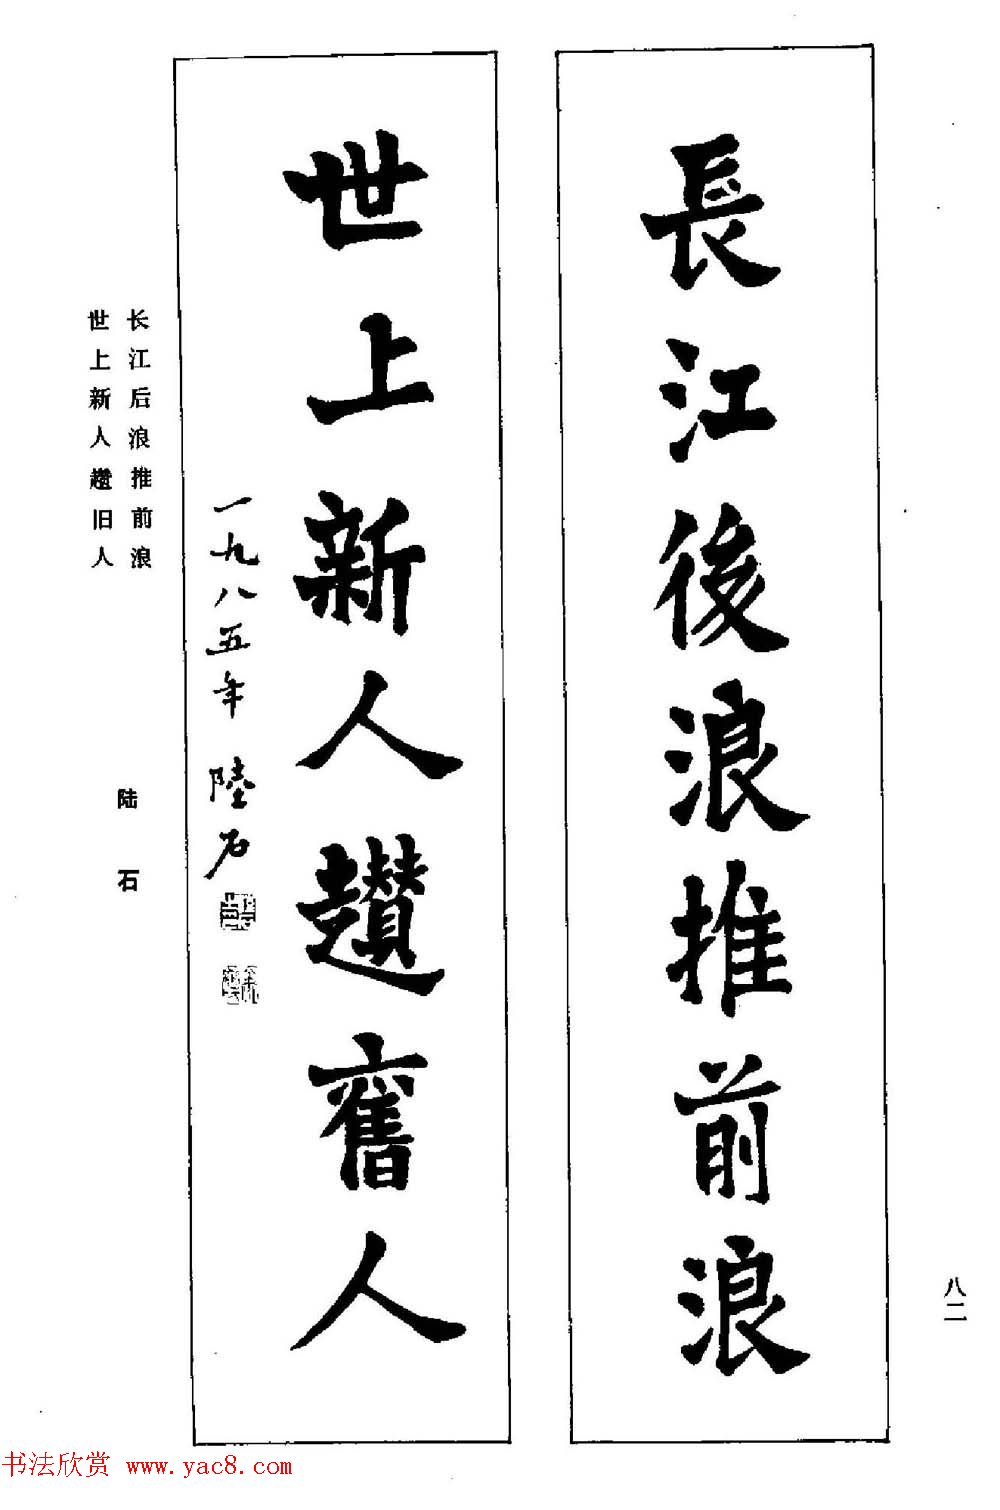 長江後浪推前浪
世上新人趲舊人
一九八五年 陸石
长江后浪推前浪
世上新人趱旧人
陆石
八二
书法欣赏 www.yac8.com